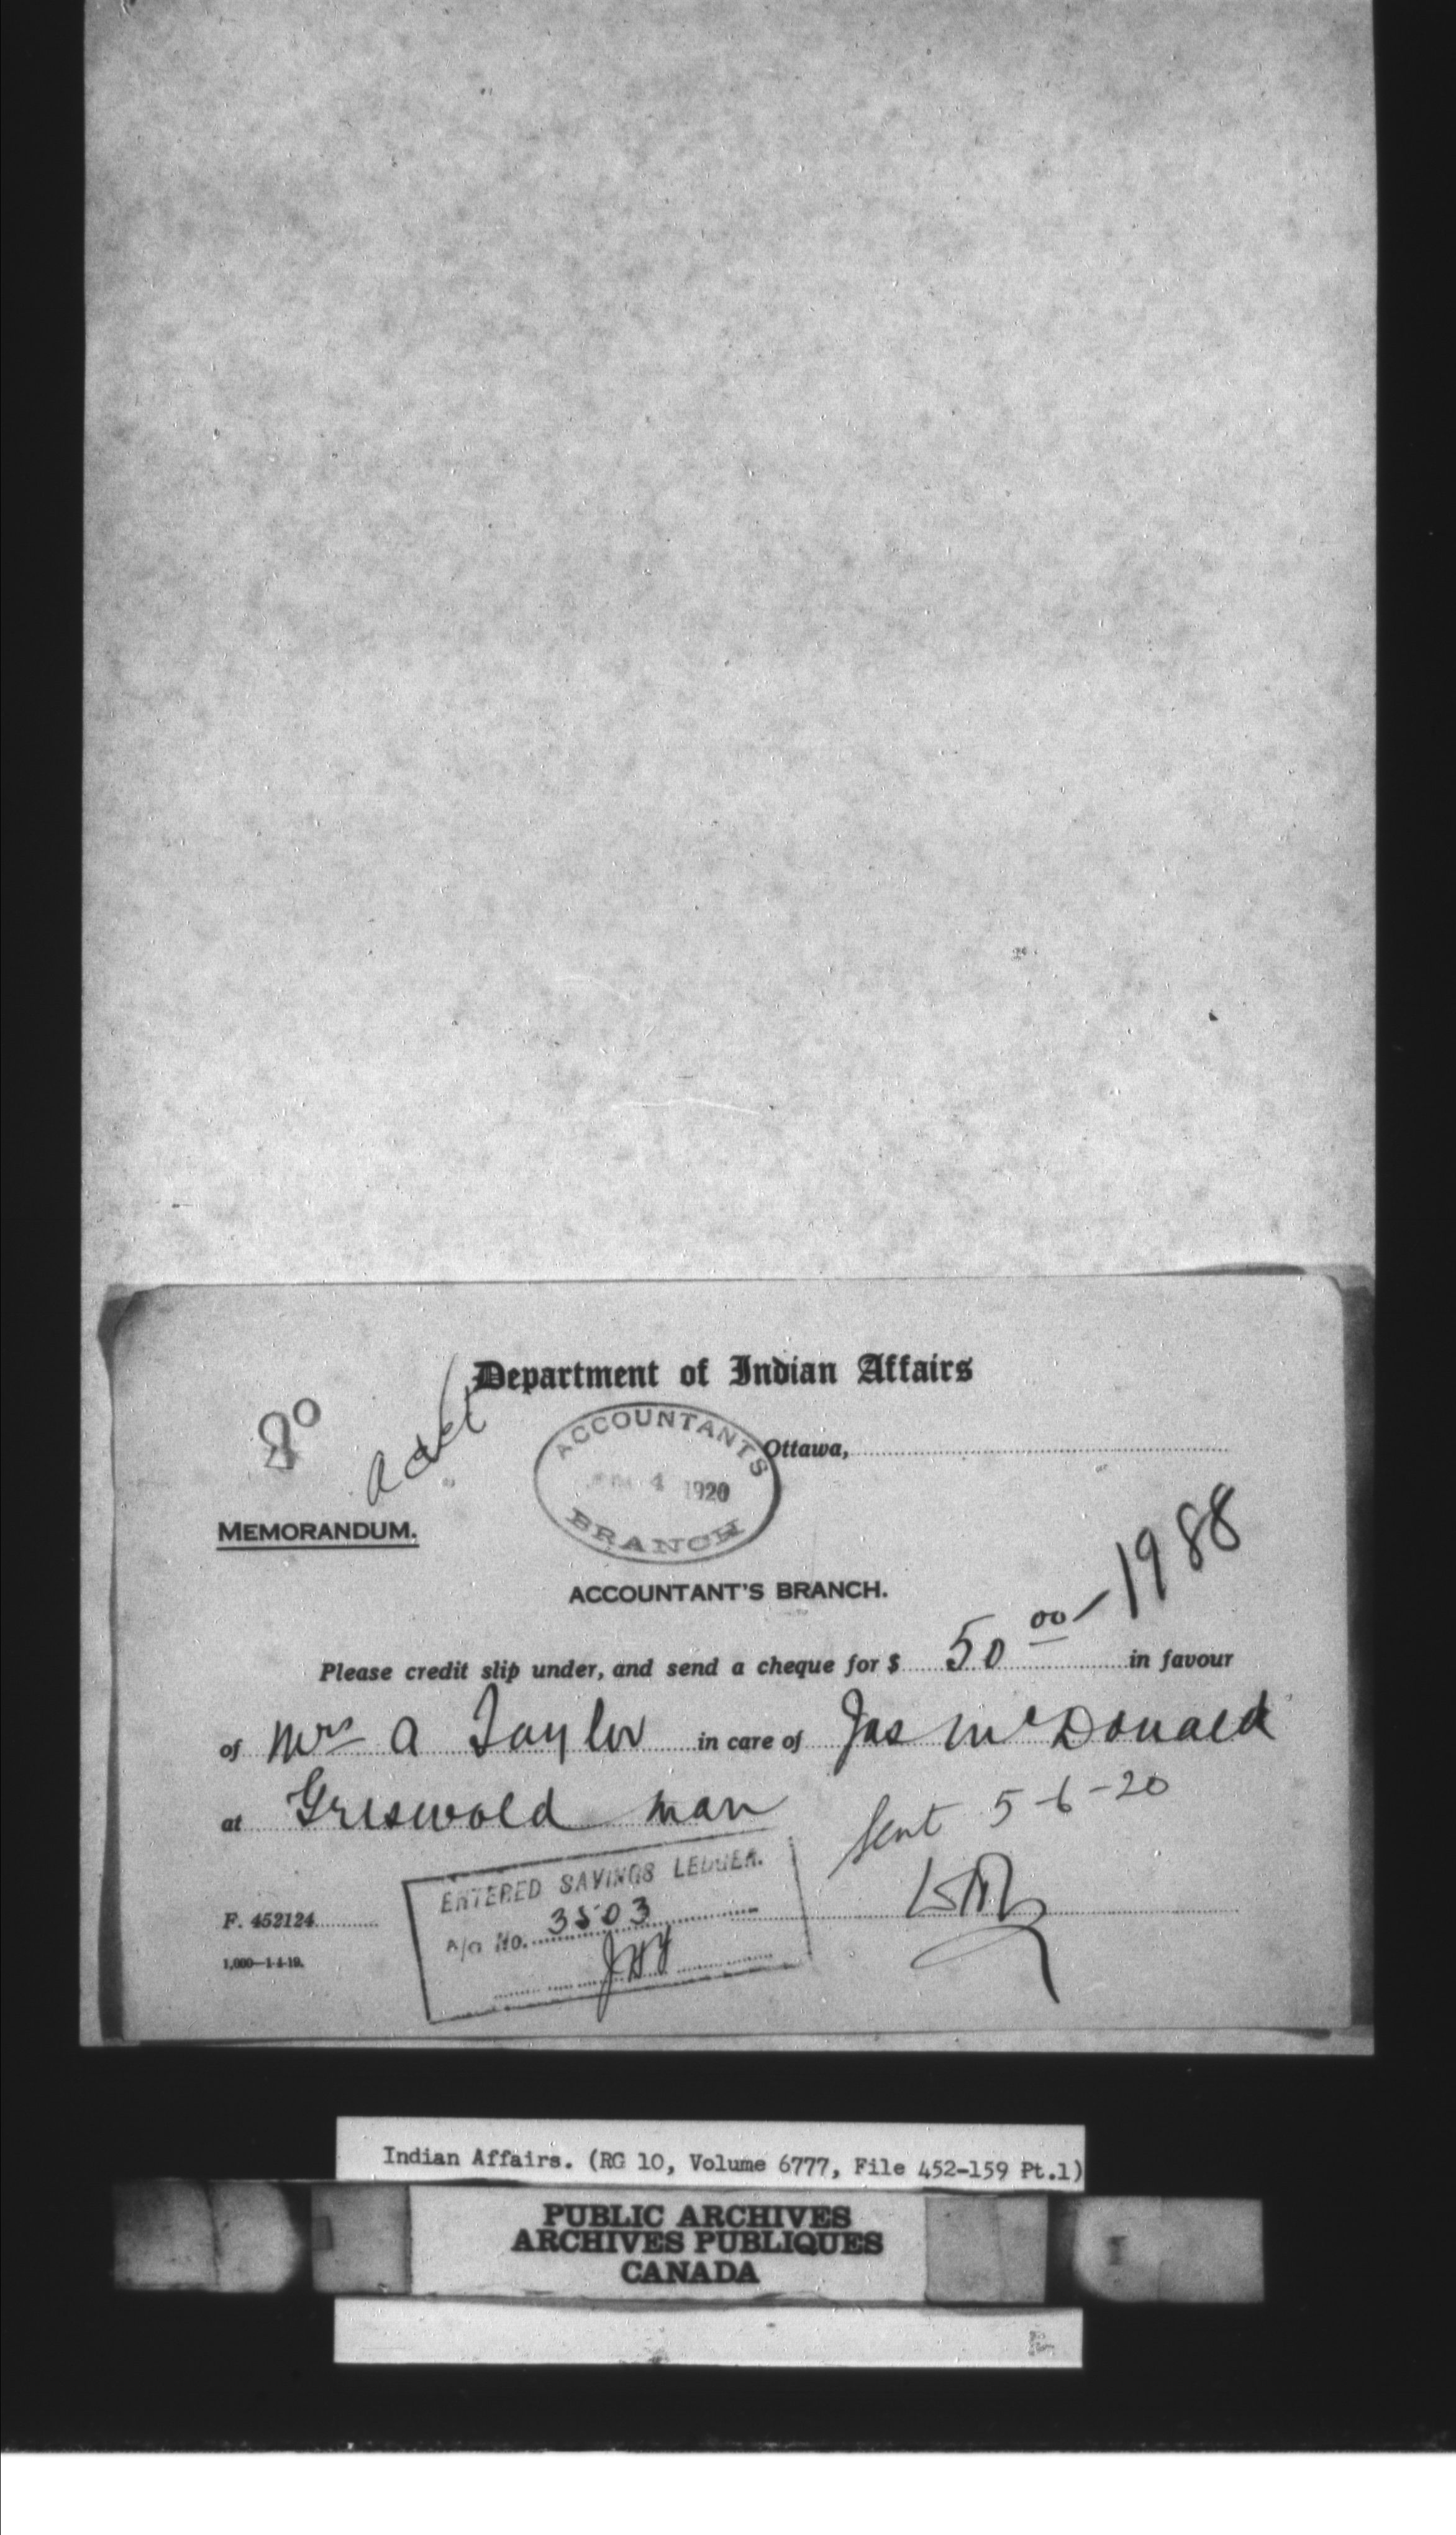 Department of Indian Affairs
Ottawa,
ACCOUNTANTS
4 1920
BRANCH
MEMORANDUM.
ACCOUNTANT'S BRANCH.
1988
Please credit slip under, and send a cheque for $ 50 00 in favour
of Mrs A Taylor in care of Jas McDonald
at Griswold Man
Sent 5-6-20
ENTERED SAVINGS LEDGER.
A/c No. 3503
F. 452124
1,000—1-4-19.
Indian Affairs. (RG 10, Volume 6777, File 452-159 Pt.1)
PUBLIC ARCHIVES
ARCHIVES PUBLIQUES
CANADA